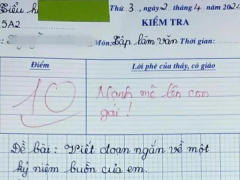 Tiểu h
Thứ 3, ngày 2 tháng 4 năm 202
5A2
KIỂM TRA
Môn: Tập làm văn Thời gian:
Điểm
Lời phê của thầy, cô giáo
10
Mạnh mẽ lên con
gái!
Đề bài: Viết đoạn ngắn về một
kỷ niệm buồn của em.